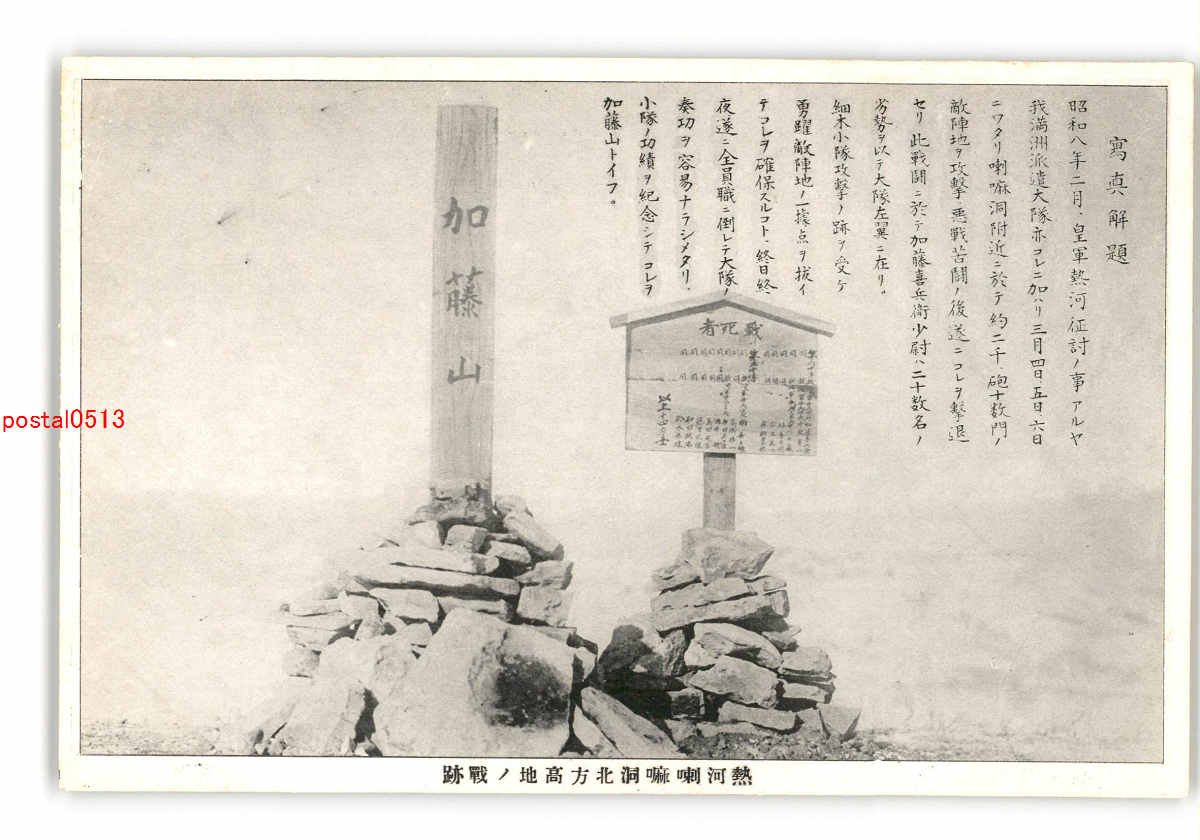 寫真解題
昭和八年二月、皇軍熱河征討ノ事アルヤ
我満洲派遣大隊亦コレニ加ハリ三月四日、五日、六日
ニワタリ喇嘛洞附近ニ於テ約二千、砲十数門ノ
敵陣地ヲ攻撃、悪戦苦闘ノ後遂ニコレヲ撃退
セリ 此戦闘ニ於テ加藤喜兵衛少尉ハ二十数名ノ
劣勢ヲ以テ大隊左翼ニ在リ。
細木小隊攻撃ノ跡ヲ受ケ
勇躍敵陣地ノ一據点ヲ抜イ
テコレヲ確保スルコト、終日終
夜遂ニ全員職ニ倒レテ大隊ノ
奏功ヲ容易ナラシメタリ、
小隊ノ功績ヲ紀念シテコレヲ
加藤山トイフ。
加藤山
戦死者
postal0513
熱河喇嘛洞北方高地ノ戰跡